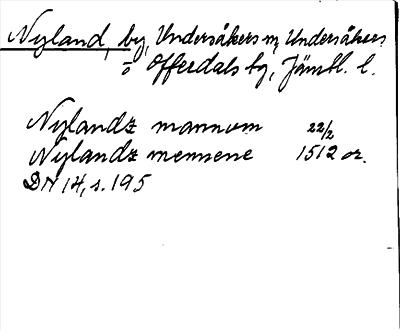 Nyland, by, Undersåkers sn, Undersåkers
o Offerdals tg, Jämtl. l.
Nylandz mannom 22/2
Nylandz mennene 1512 or.
DN 14, s. 195